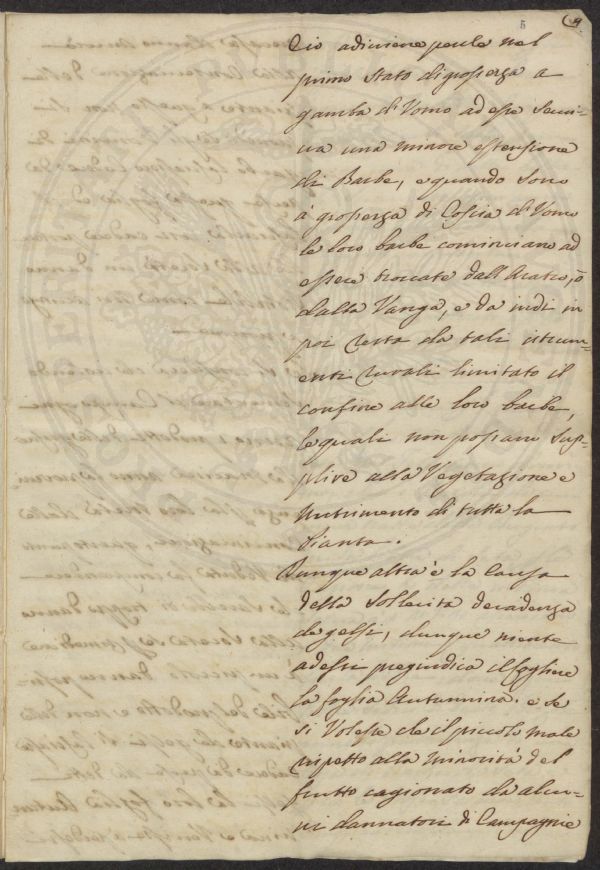 5
Ciò adiviene perche nel
primo Stato di grossezza a
gamba d'Uomo ad esse Servi-
va una minore estensione
di Barbe, e quando sono
à grossezza di Coscia d'Uomo
le loro barbe cominciano ad
essere troccate dall'Aratro, ò
dalla Vanga, e da indi in
poi resta da tali istrum-
enti rurali limitato il
confine alle loro barbe,
le quali non possano Sup-
plire alla Vegetazione e
nutrimento di tutta la
Pianta.
Dunque altra è la Causa
della Sollecita decadenza
de gelsi, dunque niente
ad essi pregiudica il sogliere
la foglia Autunnina. e se
si Volesse che il piccolo male
rispetto alla minorità del
frutto cagionato da alcu-
ni dannatori di Campagnie